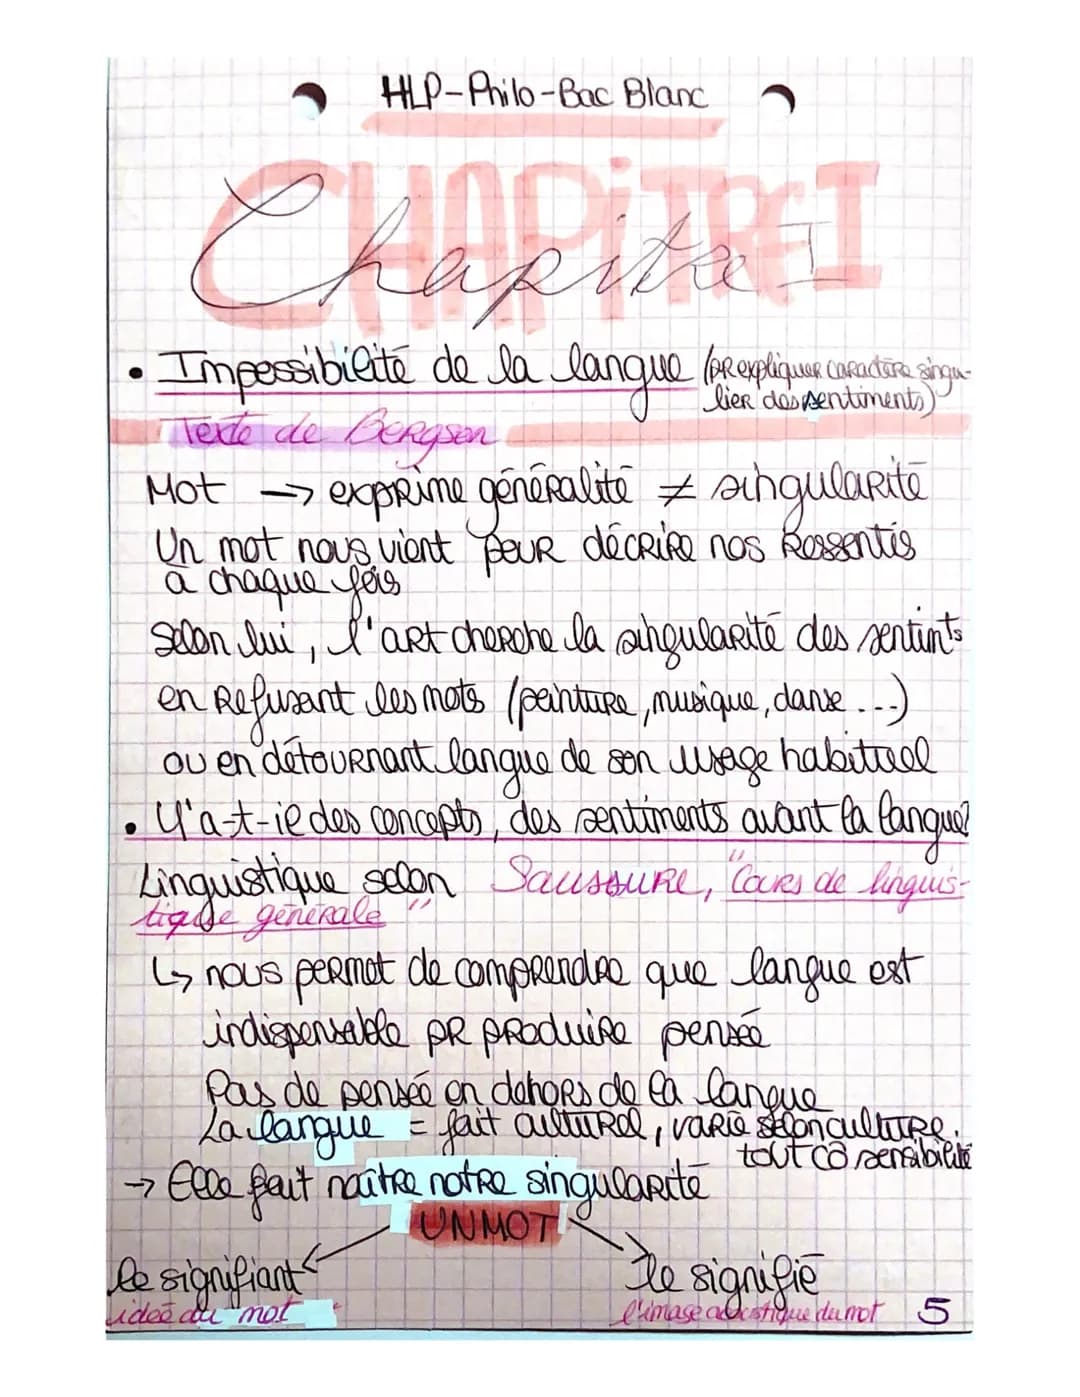 HLP-Philo-Bac Blanc
CHAPITRE I
Chapitre I
• Impossibilité de la langue (PR expliquer caractère singu-
lier des sentiments)
Texte de Bergson
Mot → exprime généralité ≠ singularité
Un mot nous vient pour décrire nos ressentis
à chaque fois
Selon lui, l'art cherche la singularité des sentimts
en refusant les mots (peinture, musique, danse...)
ou en détournant langue de son usage habituel
• Y'a-t-il des concepts, des sentiments avant la langue?
Linguistique selon Saussure, "Cours de linguis-
tique générale"
↳ nous permet de comprendre que langue est
indispensable PR produire pensée
Pas de pensée en dehors de la langue
La langue = fait culturel, varie selon culture,
tout cô sensibilité
→ Elle fait naître notre singularité
UN MOT
le signifiant
le signifié
idée du mot
l'image acoustique du mot
5